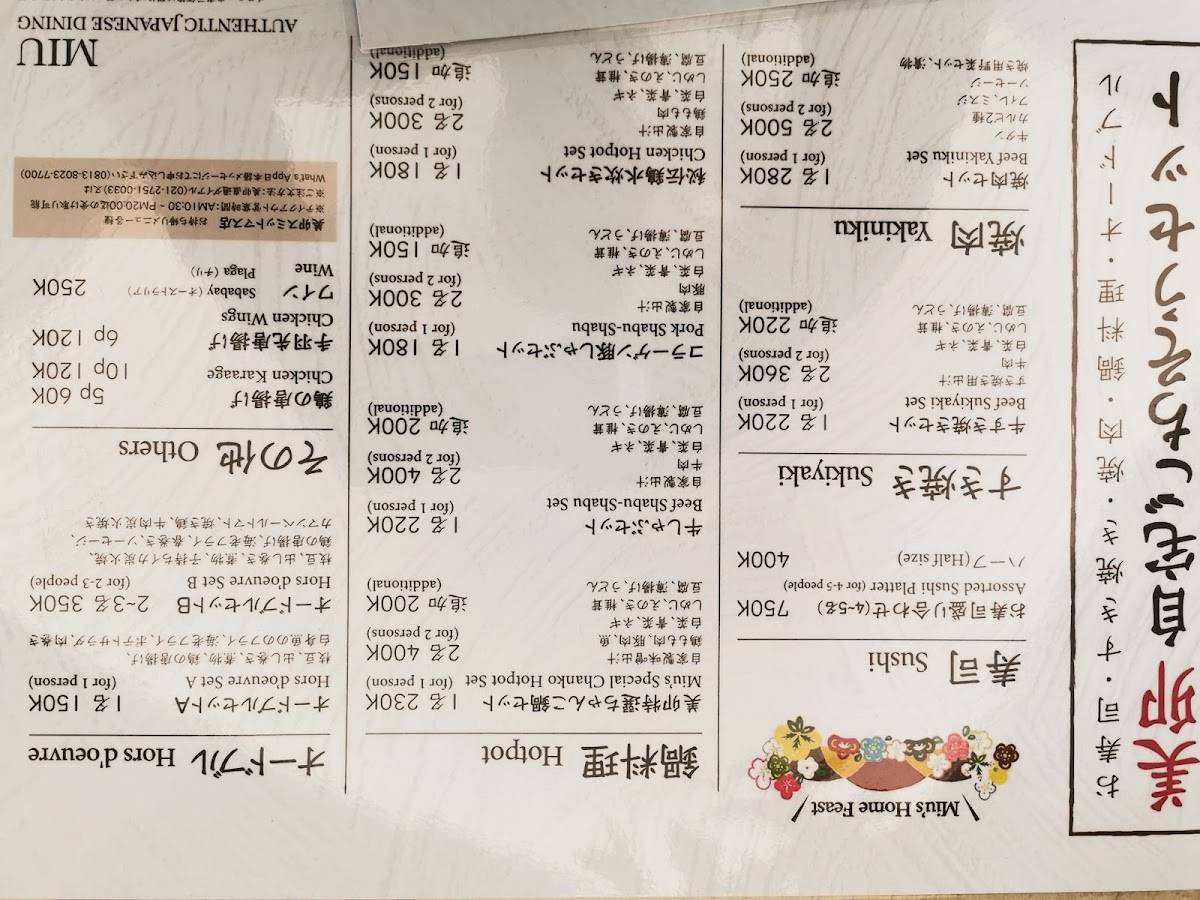 美卯 自宅ごちそうセット
お寿司・すき焼き・焼肉・鍋料理・オードブル
Miu's Home Feast
寿司 Sushi
お寿司盛り合わせ(4~5名) 750K
Assorted Sushi Platter (for 4-5 people)
ハーフ(Half size) 400K
すき焼き Sukiyaki
牛すき焼きセット 1名 220K
Beef Sukiyaki Set (for 1 person)
すき焼き用出汁 2名 360K
牛肉 (for 2 persons)
白菜、青菜、ネギ 追加 220K
しめじ、えのき、椎茸 (additional)
豆腐、薄揚げ、うどん
焼肉 Yakiniku
焼肉セット 1名 280K
Beef Yakiniku Set (for 1 person)
牛タン 2名 500K
カルビ2種 (for 2 persons)
フィレ、ミスジ 追加 250K
ソーセージ (additional)
焼き用野菜セット、漬物
鍋料理 Hotpot
美卯特選ちゃんこ鍋セット 1名 230K
Miu's Special Chanko Hotpot Set (for 1 person)
自家製味噌出汁 2名 400K
鶏もも肉、豚肉、魚 (for 2 persons)
白菜、青菜、ネギ 追加 200K
しめじ、えのき、椎茸 (additional)
豆腐、薄揚げ、うどん
牛しゃぶセット 1名 220K
Beef Shabu-Shabu Set (for 1 person)
自家製出汁 2名 400K
牛肉 (for 2 persons)
白菜、青菜、ネギ 追加 200K
しめじ、えのき、椎茸 (additional)
豆腐、薄揚げ、うどん
コラーゲン豚しゃぶセット 1名 180K
Pork Shabu-Shabu (for 1 person)
自家製出汁 2名 300K
豚肉 (for 2 persons)
白菜、青菜、ネギ 追加 150K
しめじ、えのき、椎茸 (additional)
豆腐、薄揚げ、うどん
秘伝鶏水炊きセット 1名 180K
Chicken Hotpot Set (for 1 person)
自家製出汁 2名 300K
鶏もも肉 (for 2 persons)
白菜、青菜、ネギ 追加 150K
しめじ、えのき、椎茸 (additional)
豆腐、薄揚げ、うどん
オードブル Hors d'oeuvre
オードブルセットA 1名 150K
Hors d'oeuvre Set A (for 1 person)
枝豆、出し巻き、煮物、鶏の唐揚げ、
白身魚ののフライ、海老フライ、ポテトサラダ、肉巻き
オードブルセットB 2~3名 350K
Hors d'oeuvre Set B (for 2-3 people)
枝豆、出し巻き、煮物、子持ちイカ炭火焼、
鶏の唐揚げ、海老フライ、春巻き、ソーセージ、
カマンベールトマト、焼き鶏、牛肉炭火焼き
その他 Others
鶏の唐揚げ 5p 60K
Chicken Karaage 10p 120K
手羽先唐揚げ 6p 120K
Chicken Wings
ワイン Sababay (オーストラリア) 250K
Wine Plaga (チリ)
美卯スミットマス店 お持ち帰りメニュー各種
※テイクアウト営業時間：AM10:30 - PM20:00迄の受け取り可能
※ご注文方法：美卯直通ダイアル(021-2751-0033)又は
What's App日本語メッセージにてお申し込み下さい(0813-8023-7700)
MIU
AUTHENTIC JAPANESE DINING